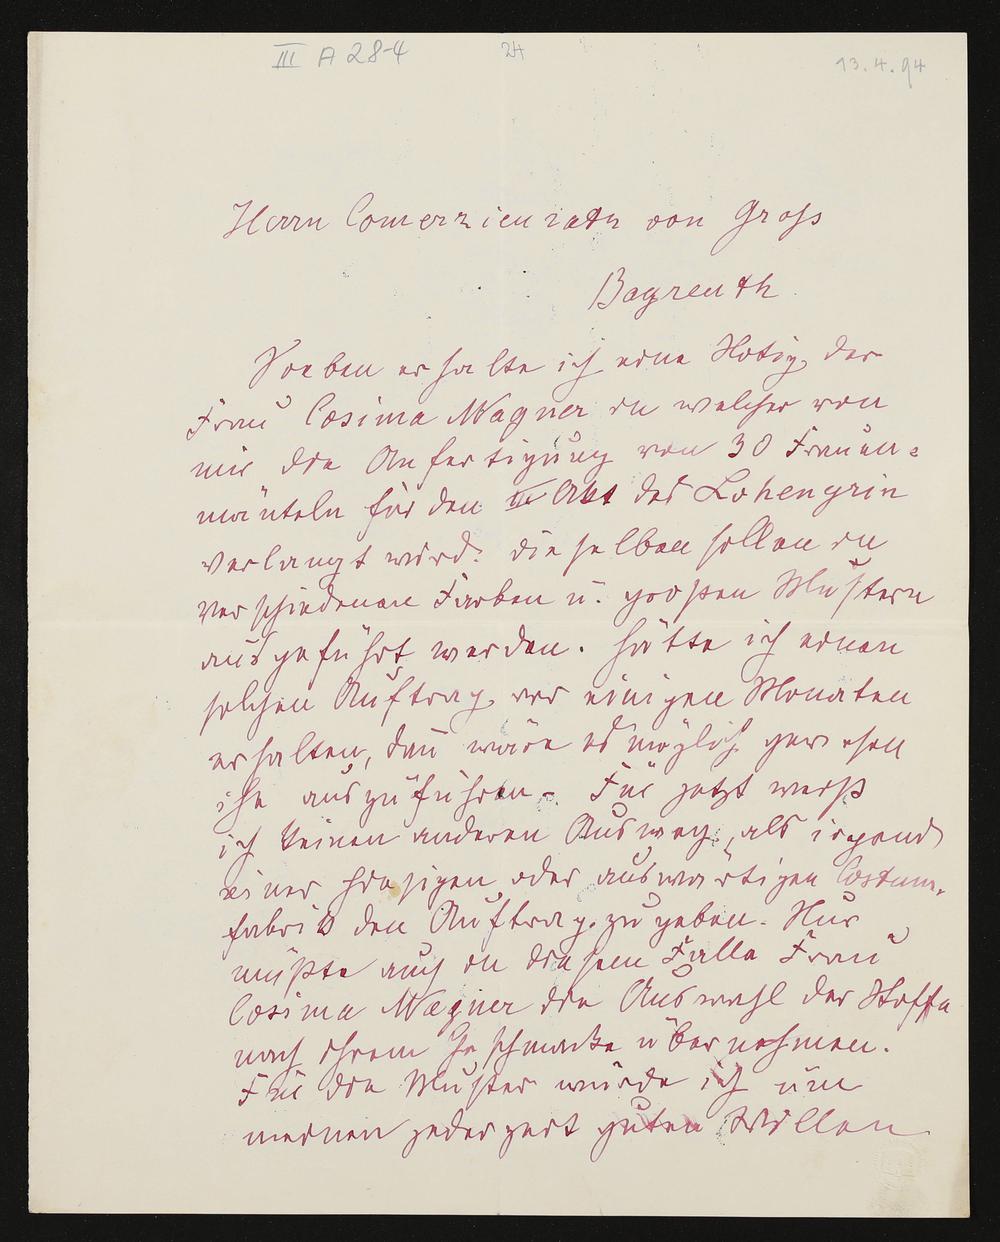 III A 28-4 24 13.4.94
Herrn Comerzienrath von Gross
Bayreuth
Soeben erhalte ich eine Notiz der
Frau Cosima Wagner in welcher von
mir die Anfertigung von 30 Frauen=
mänteln für den III Akt des Lohengrin
verlangt wird. dieselben sollen in
verschiedenen Farben u. großen Mustern
ausgeführt werden. hätte ich einen
solchen Auftrag vor einigen Monaten
erhalten, dan wäre es möglich gewesen
ihn auszuführen - Für jetzt weiß
ich keinen anderen Ausweg, als irgend
einer hiesigen oder auswärtigen Costum-
fabrik den Auftrag zu geben. Nur
müßte auch in diesem Falle Frau
Cosima Wagner die Auswahl der Stoffe
nach ihrem Geschmacke übernehmen.
Für die Muster würde ich um
meinen jederzeit guten Willen